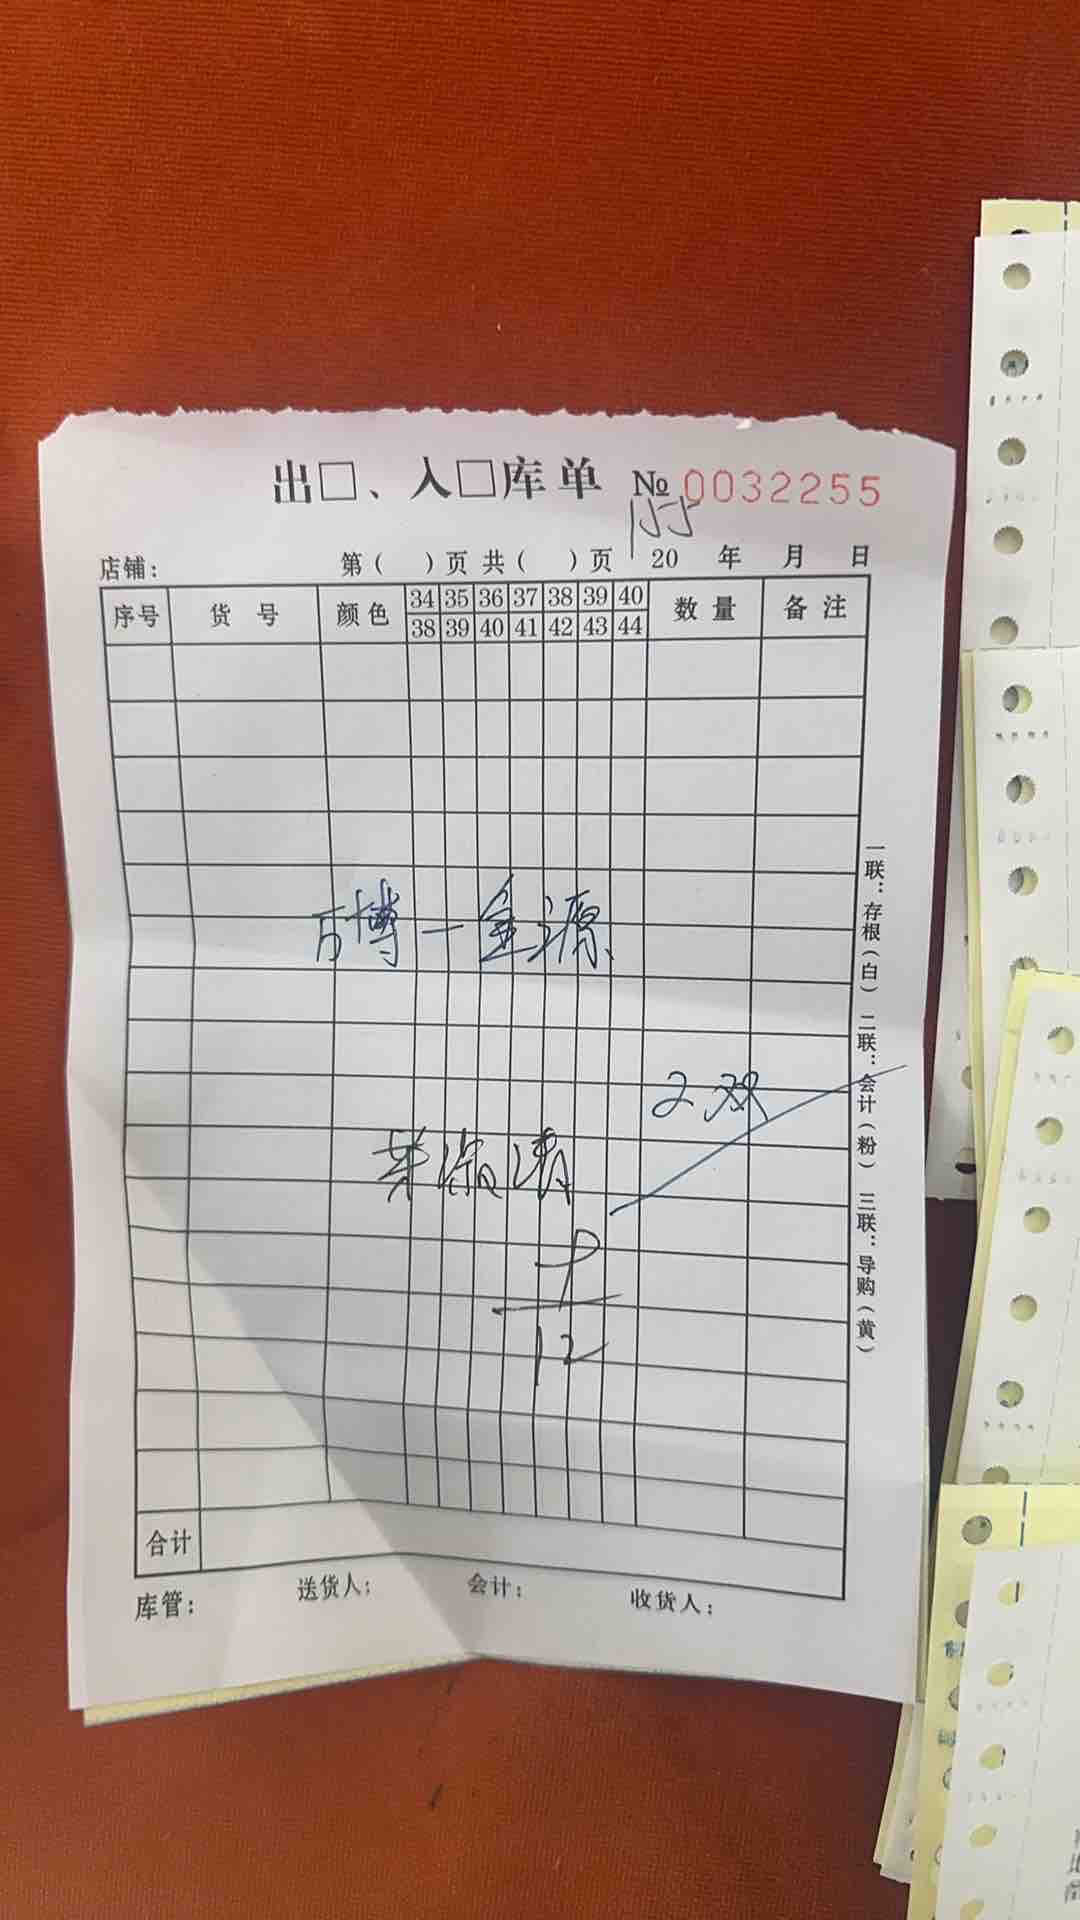 出□、入□库单 № 0032255
155
店铺： 第（ ）页 共（ ）页 20 年 月 日
序号 货号 颜色 34 35 36 37 38 39 40 数量 备注
38 39 40 41 42 43 44
万博一金源
2双
12
合计
库管： 送货人： 会计： 收货人：
一联：存根（白） 二联：会计（粉） 三联：导购（黄）